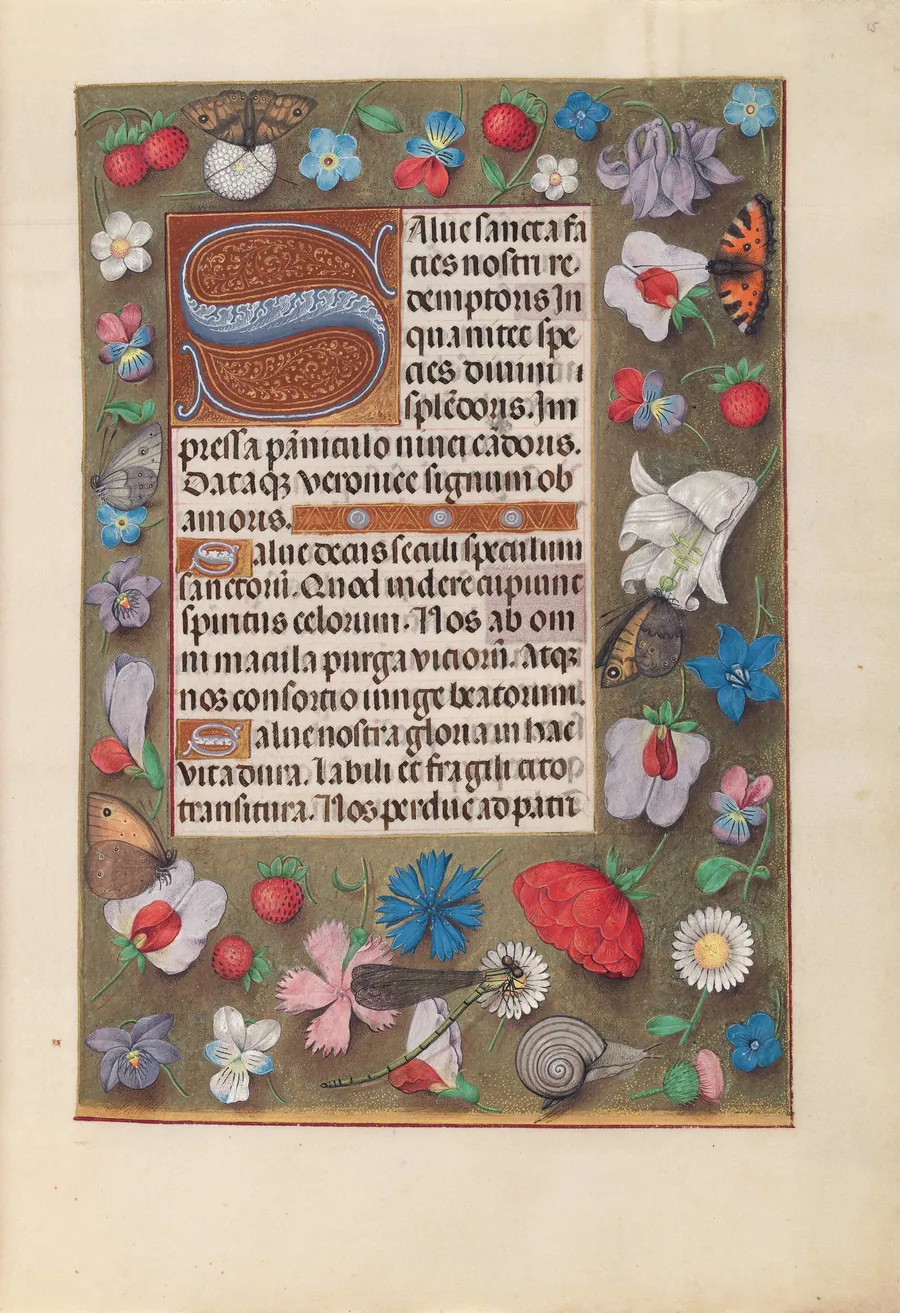 15
Salue sancta fa
cies nostri re
demptoris In
qua nitet spe
cies diuini
splēdoris. Im
pressa pāniculo niuei cādoris.
Dataqꝫ veronice signum ob
amoris.
Salue decus seculi speculum
sanctorū. Quod uidere cupiunt
spiritus celorum. Nos ab om
ni macula purga viciorū. Atqꝫ
nos consortio iunge beatorum.
Salue nostra gloria in hac
vita dura. labili et fragili cito
transitura. Nos perduc ad patri